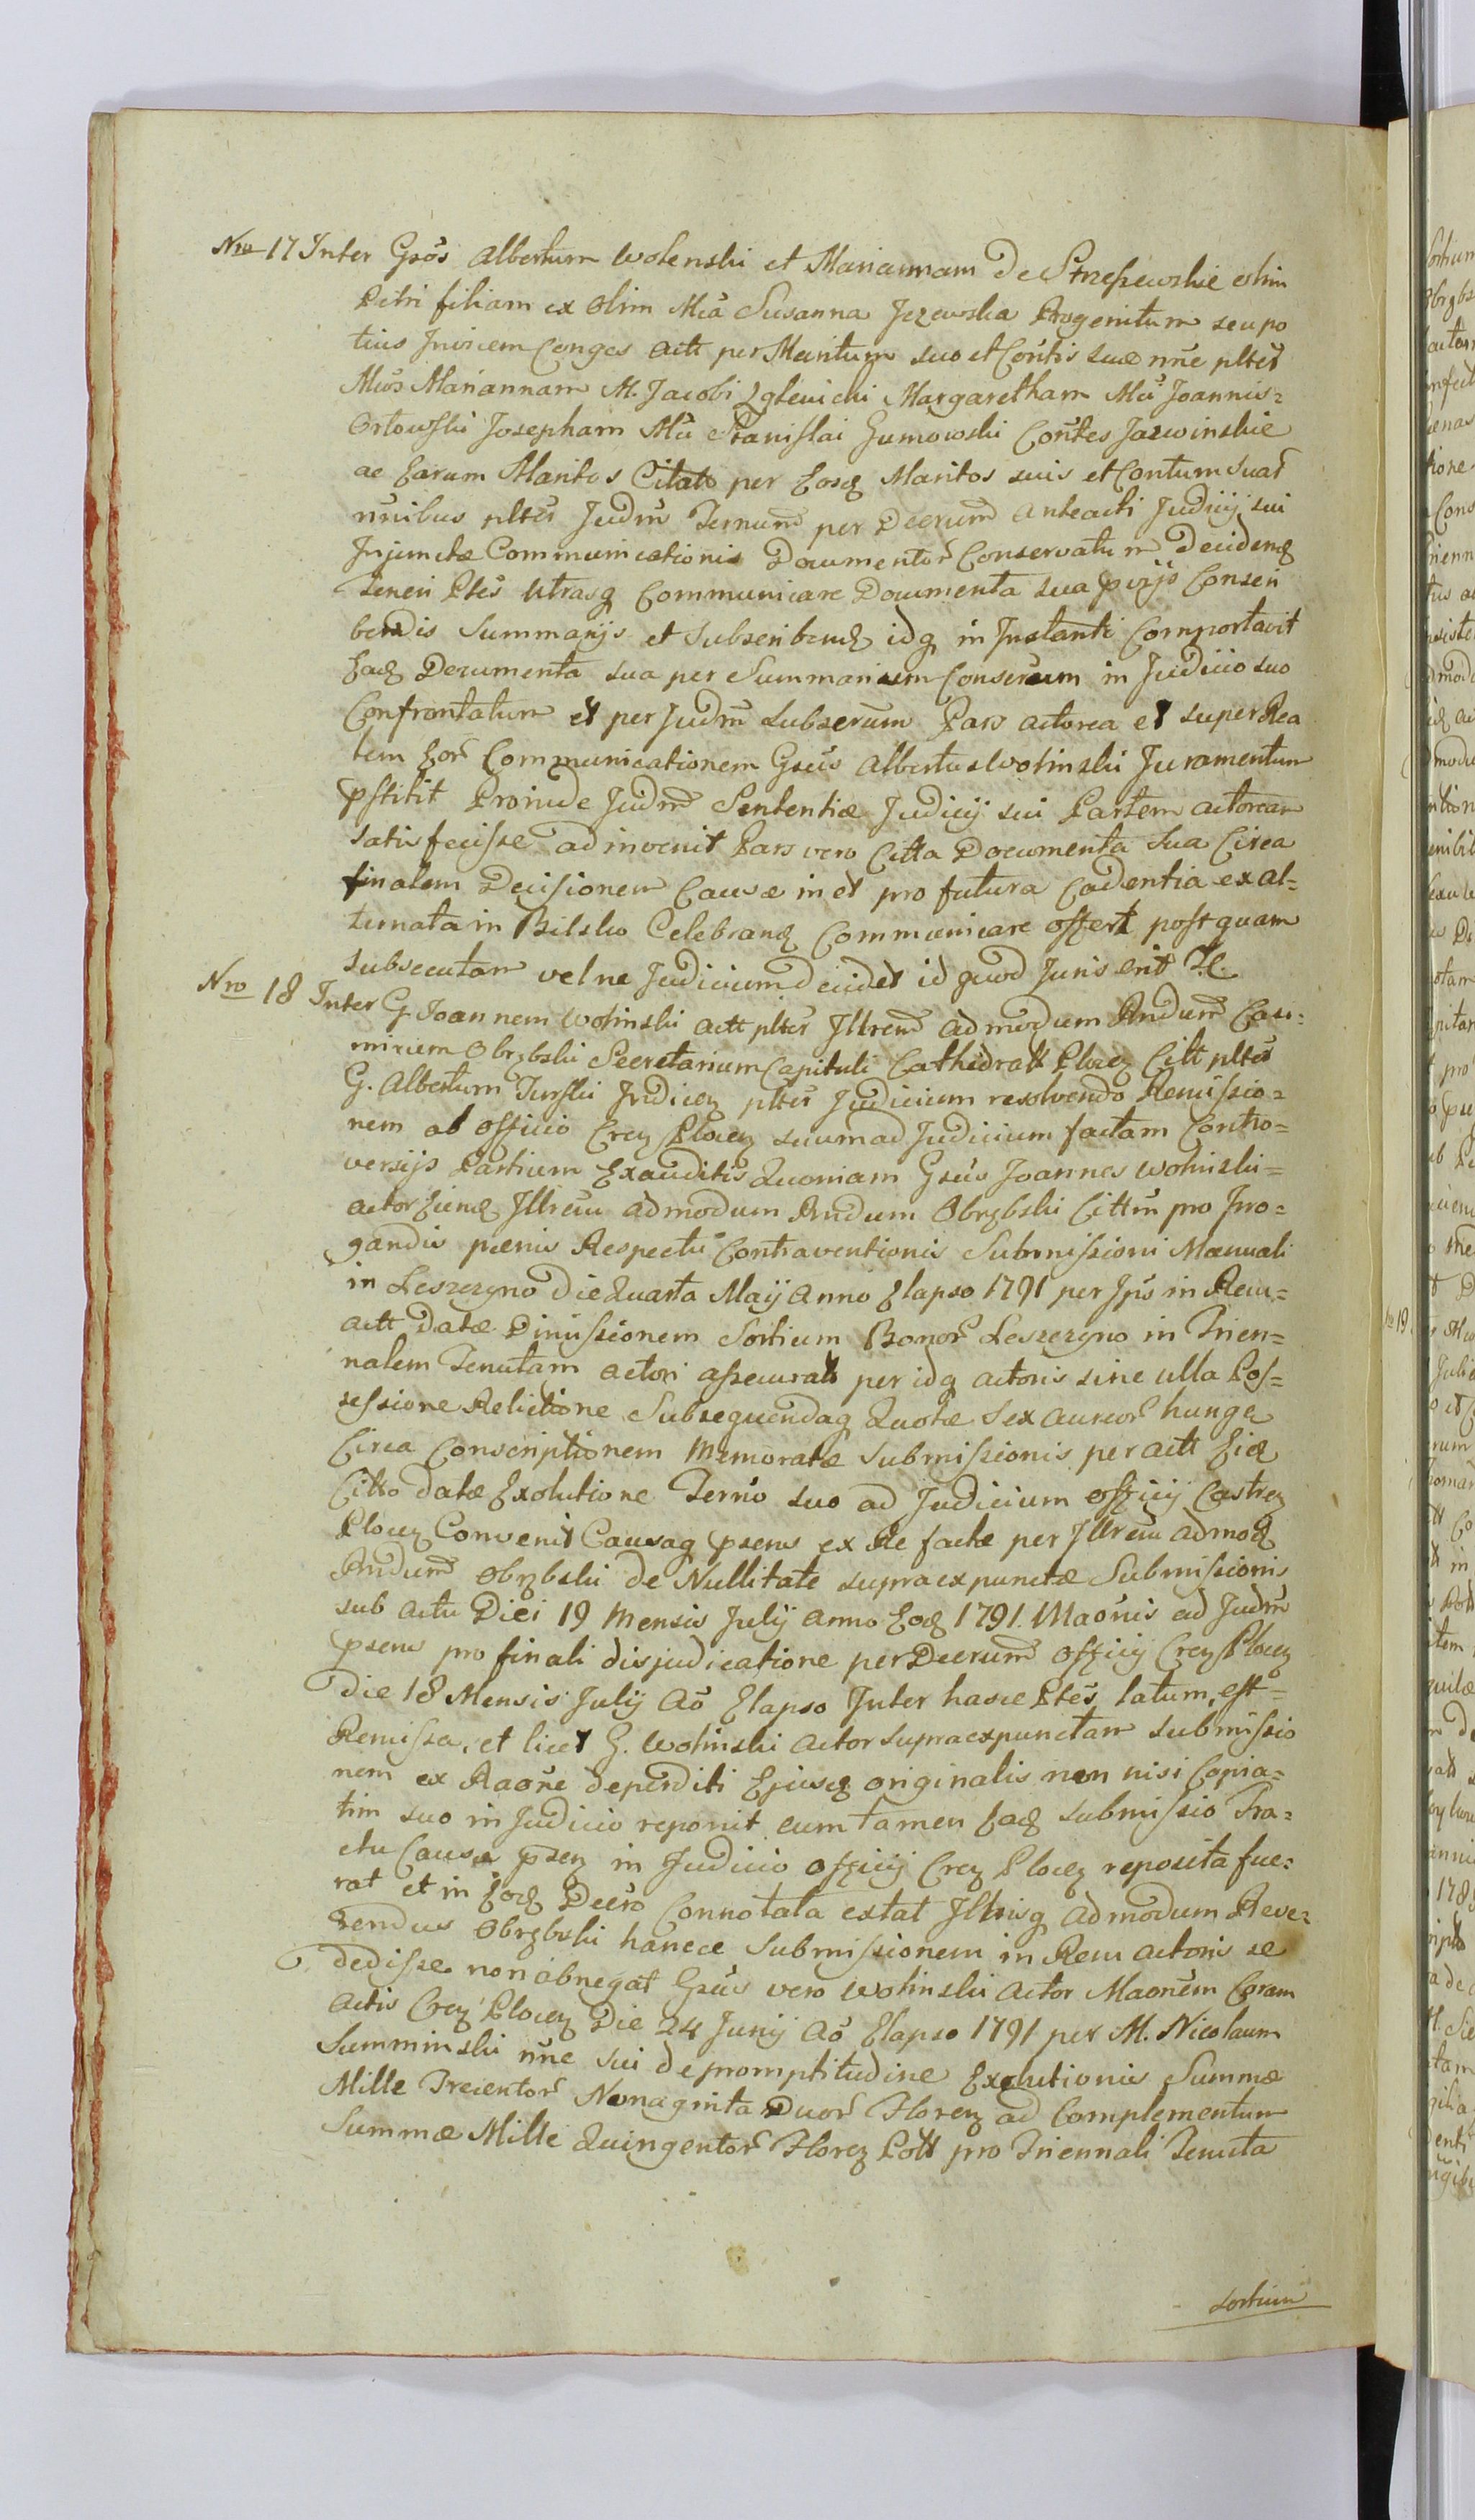 Nro 17 Inter Gsos Albertum Wolenski et Mariannam de Strzeszewskie olim
Petri filiam ex Olim Mca Susanna Jezewska Progenitum seu po
tius Invicem Conges actt per Maritum suo et Contis suæ nñe pltes
Mcos Mariannam M. Jacobi Zglenicki Margaretham Mci Joannis=
Orłowski Josepham Mci Stanislai Gumowski Contes Jarwinskie
ac Earum Maritos Citatt per Eosq Maritos suis et Contum suar
nñibus pltes Judm Ternum per Decrum anteacti Judicij sui
Injunctæ Communicationis Documentor Conservatum Decidenq
Teneri Ptes Utrasq Communicare Documenta sua pvijs Conseri
bendis Summarijs et Subscribenq idq in Instanti Comportavit
Eaq Documenta sua per Summarium Conserum in Judicio suo
Confrontatum et per Judm Subscrum Pars actorea et super Rea
tem Eor Communicationem Gsus Albertus Wolinski Juramentum
pstitit Proinde Judm Sententiæ Judicij sui Partem actoream
satisfecisse adinvenit Pars vero Citta Documenta sua Circa
finalem Decisionem Causæ in et pro futura Cadentia ex al=
ternata in Bilsko Celebranq Communicare offert postquam
subsecutam vel ne Judicium decidet id quod Juris erit &c.
Nro 18 Inter G Joannem Wolinski actt pltes Illrem admodum Rndum Casi=
mirum Obrębski Secretarium Capituli Cathedratt Plocen Citt pltes
G. Albertum Turski Judicen pltes Judicium resolvendo Remissio=
nem ab officio Cren Plocen suum ad Judicium factam Contro=
versijs Partium Exauditis Quoniam Gsus Joannes Wolinski=
actor Eunq Illrem admodum Rndum Obrębski Cittm pro Irro=
gandis pænis Respectu Contraventionis Submissioni Manuali
in Leszczyno die Quarta Maij Anno Elapso 1791 per Ips in Rem=
actt datæ Dimissionem Sortium Bonor Leszczyno in Trien=
nalem Tenutam actori assecuratt per idq actoris sine ulla Pos=
sessione Relictione Subsequendaq Quotæ sex aureor hunga
Circa Conscriptionem Memoratæ Submissionis per actt Eiq
Citto datæ Exolutione Termo suo ad Judicium officij Castren
Plocen Convenit Causaq psens ex Re factæ per Illrem admoq
Rndum Obrębski de Nullitate supraexpunctæ Submissionis
sub actu Diei 19 Mensis Julij anno Eoq 1791. Maonis ad Judm
psens pro finali disjudicatione per Decrum officij Cren Plocen
die 18 Mensis Julij Ao Elapso Inter hasce Ptes latum, est=
Remissa, et licet G. Wolinski actor supraexpunctam submissio
nem ex Raone deperditi Ejusq originalis non nisi Copia=
tim suo in Judicio reponit cum tamen Eaq submissio Tra=
ctu Causæ psen in Judicio officij Cren Plocen reposita fue=
rat et in Eoq Decro Connotata extat Illrisq admodum Reve=
rendus Obrębski hancce Submissionem in Rem actoris se
dedisse non abnegat Gsus vero Wolinski actor Maonem Coram
actis Cren Plocen Die 24 Junij Ao Elapso 1791 per M. Nicolaum
Summinski nñe sui de promptitudine Exolutionis Summæ
Mille Trecentor Nonaginta Duor Floren ad Complementum
Summæ Mille Quingentor Floren Pott pro Triennali Tenuta
sortium